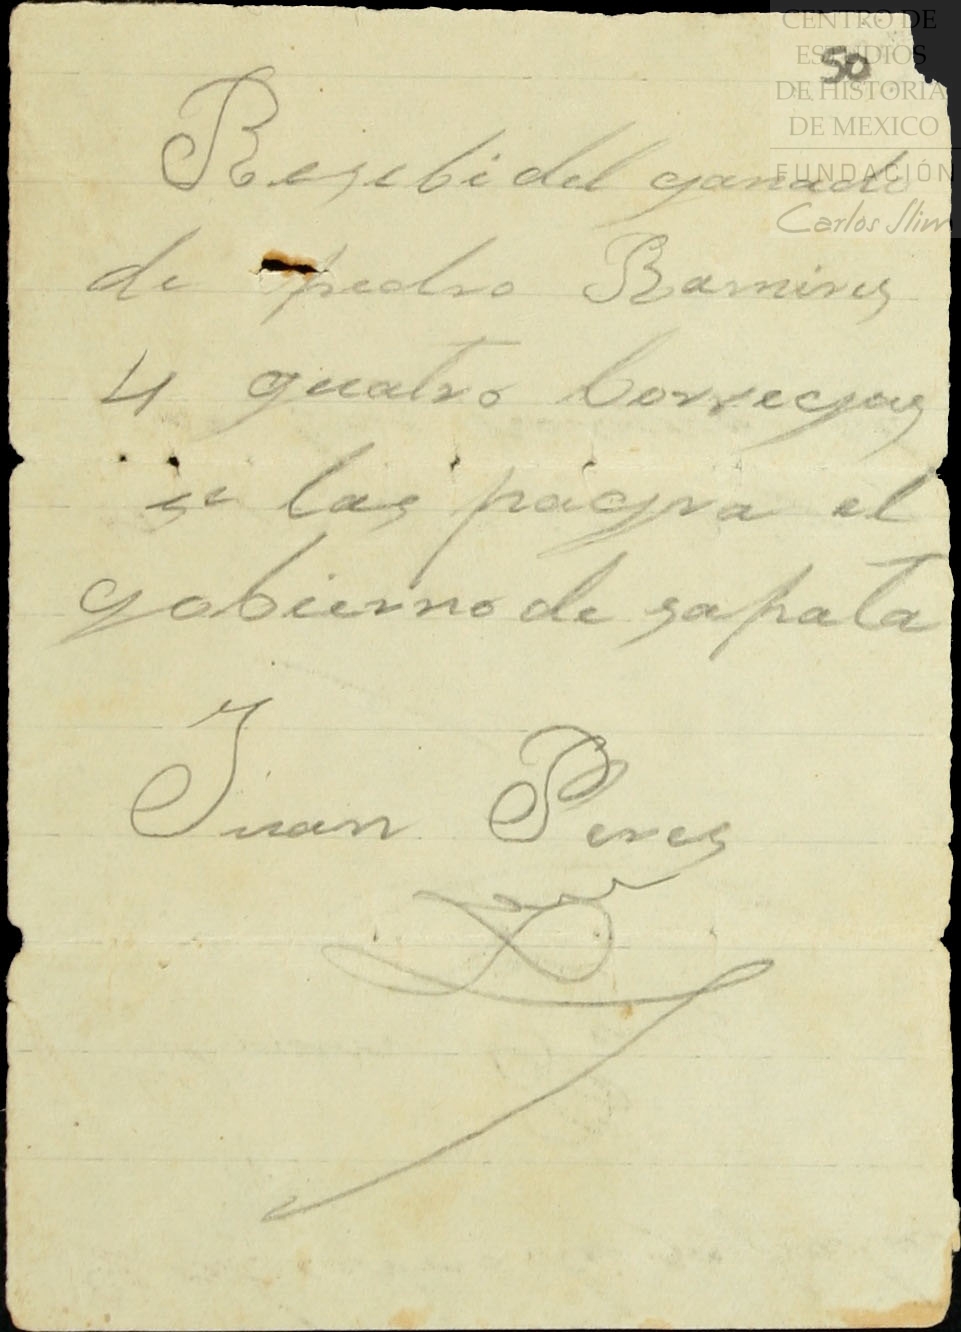 CENTRO DE
ESTUDIOS
DE HISTORIA
DE MEXICO
FUNDACIÓN
Carlos Slim
50
Resebi del ganado
de pedro Ramires
4 quatro borregas
se las pagra el
gobierno de sapata
Juan Peres